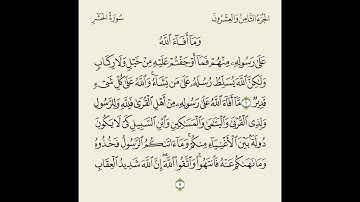 الجزء الثامن والعشرون
سورة الحشر
وَمَآ أَفَآءَ ٱللَّهُ
عَلَىٰ رَسُولِهِۦ مِنۡهُمۡ فَمَآ أَوۡجَفۡتُمۡ عَلَيۡهِ مِنۡ خَيۡلٖ وَلَا رِكَابٖ
وَلَٰكِنَّ ٱللَّهَ يُسَلِّطُ رُسُلَهُۥ عَلَىٰ مَن يَشَآءُۚ وَٱللَّهُ عَلَىٰ كُلِّ شَيۡءٖ
قَدِيرٞ ٦ مَّآ أَفَآءَ ٱللَّهُ عَلَىٰ رَسُولِهِۦ مِنۡ أَهۡلِ ٱلۡقُرَىٰ فَلِلَّهِ وَلِلرَّسُولِ
وَلِذِي ٱلۡقُرۡبَىٰ وَٱلۡيَتَٰمَىٰ وَٱلۡمَسَٰكِينِ وَٱبۡنِ ٱلسَّبِيلِ كَيۡ لَا يَكُونَ
دُولَةَۢ بَيۡنَ ٱلۡأَغۡنِيَآءِ مِنكُمۡۚ وَمَآ ءَاتَىٰكُمُ ٱلرَّسُولُ فَخُذُوهُ
وَمَا نَهَىٰكُمۡ عَنۡهُ فَٱنتَهُواْۚ وَٱتَّقُواْ ٱللَّهَۖ إِنَّ ٱللَّهَ شَدِيدُ ٱلۡعِقَابِ
٧